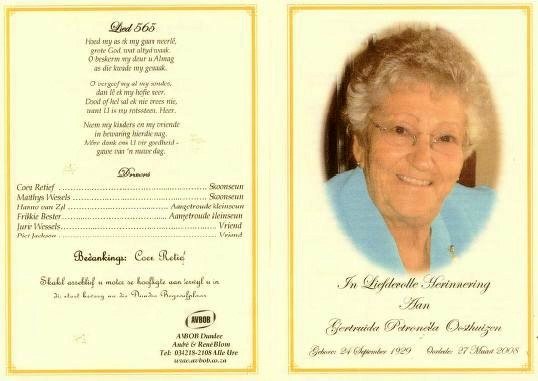 Lied 565
Hoed my as ek my gaan neerlê,
grote God, wat altyd waak.
O beskerm my deur u Almag
as die kwade my genaak.
O vergeef my al my sondes,
dan lê ek my hofie neer.
Dood of hel sal ek nie vrees nie,
want U is my rotssteen, Heer.
Neem my kinders en my vriende
in bewaring hierdie nag.
Môre dank ons U vir goedheid -
gawe van 'n nuwe dag.
Draers
Coen Retief ........ Skoonseun
Matthys Wessels ........ Skoonseun
Hanno van Zyl ........ Aangetroude kleinseun
Frikkie Bester ........ Aangetroude kleinseun
Jurie Wessels ........ Vriend
Piet Jackson ........ Vriend
Bedankings: Coen Retief
Skakel asseblief u motor se hoofligte aan terwyl u in
die stoet beweeg na die Dundee Begraafplaas
AVBOB
AVBOB Dundee
André & René Blom
Tel: 034218-2108 Alle Ure
www.avbob.co.za
In Liefdevolle Herinnering
Aan
Gertruida Petronella Oosthuizen
Gebore: 24 September 1929 Oorlede: 27 Maart 2008